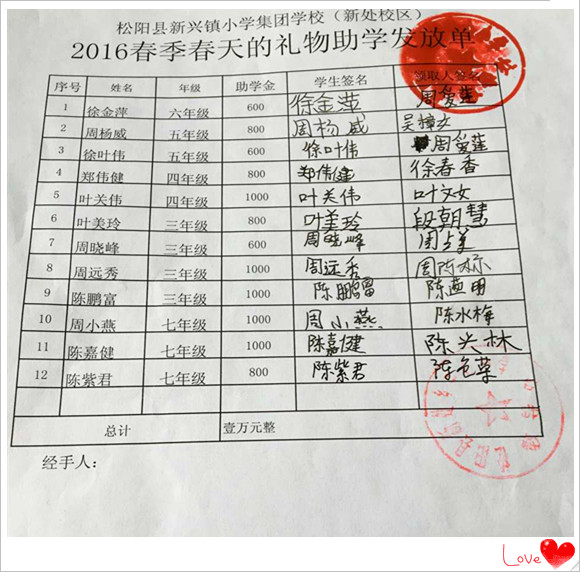 松阳县新兴镇小学集团学校（新处校区）
2016春季春天的礼物助学发放单
序号 姓名 年级 助学金 学生签名 领取人签名
1 徐金萍 六年级 600 徐金萍 周爱莲
2 周杨威 五年级 800 周杨威 吴樟女
3 徐叶伟 五年级 600 徐叶伟 周爱莲
4 郑伟健 四年级 800 郑伟健 徐春香
5 叶关伟 四年级 1000 叶关伟 叶文女
6 叶美玲 三年级 800 叶美玲 段朝慧
7 周晓峰 三年级 600 周晓峰
8 周远秀 三年级 1000 周远秀
9 陈鹏富 三年级 1000 陈鹏富
10 周小燕 七年级 1000 周小燕 陈水梅
11 陈嘉健 七年级 1000 陈嘉健 陈兴林
12 陈紫君 七年级 800 陈紫君
总计 壹万元整
经手人：
Love